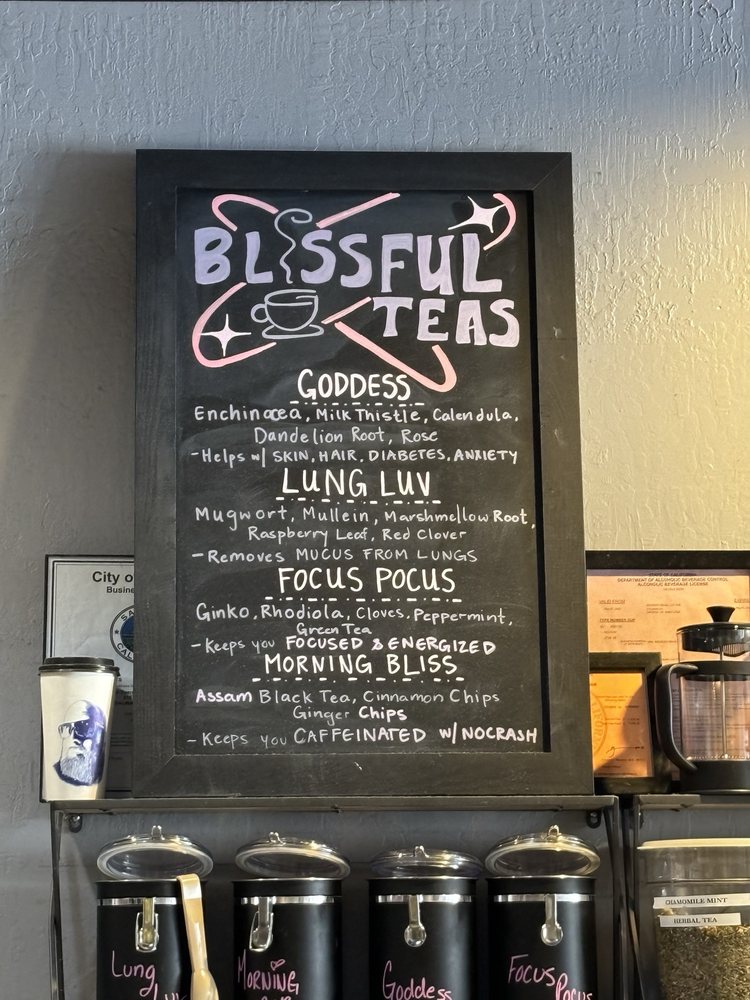 BLISSFUL
TEAS
GODDESS
Enchinacea, Milk Thistle, Calendula,
Dandelion Root, Rose
-Helps w/ SKIN, HAIR, DIABETES, ANXIETY
LUNG LUV
Mugwort, Mullein, Marshmellow Root,
Raspberry Leaf, Red Clover
-Removes MUCUS FROM LUNGS
FOCUS POCUS
Ginko, Rhodiola, Cloves, Peppermint,
Green Tea
-Keeps you FOCUSED & ENERGIZED
MORNING BLISS
Assam Black Tea, Cinnamon Chips
Ginger Chips
- Keeps you CAFFEINATED W/ NOCRASH
City of
Busine
STATE OF CALIFORNIA
DEPARTMENT OF ALCOHOLIC BEVERAGE CONTROL
ALCOHOLIC BEVERAGE LICENSE
Lung
MORNING
Goddess
Focus
Pocus
CHAMOMILE MINT
HERBAL TEA